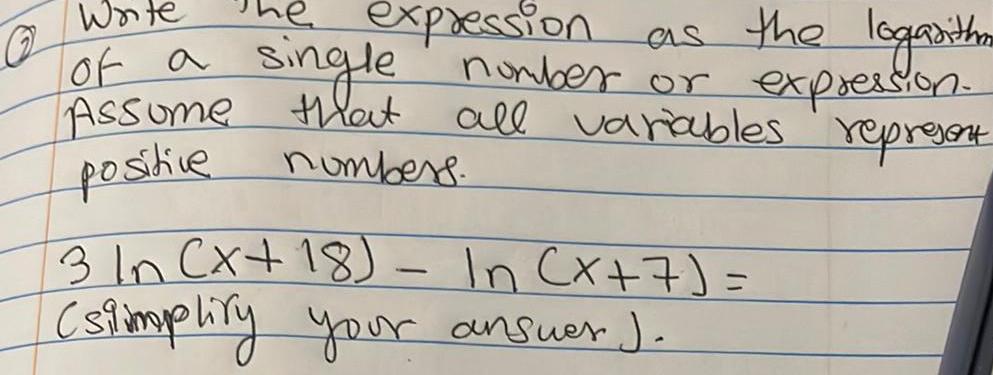 ② Write the expression as the logarithm
of a single number or expression.
Assume that all variables represent
positive numbers.
3 ln (x+18) - ln (x+7) =
(siimplify your answer).